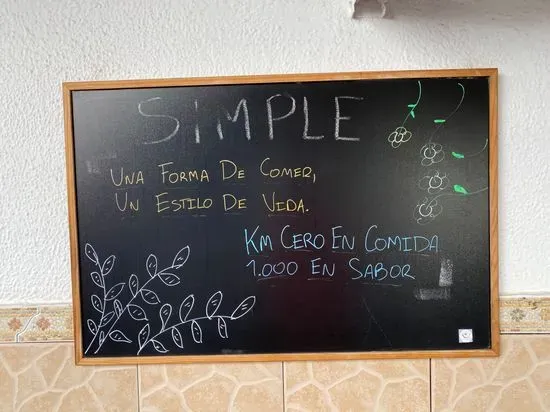 SIMPLE
UNA FORMA DE COMER,
UN ESTILO DE VIDA.
KM CERO EN COMIDA
1.000 EN SABOR